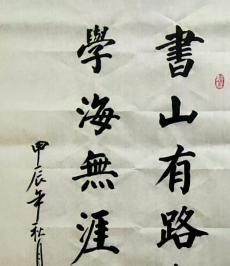 書山有路
學海無涯
甲辰年秋月